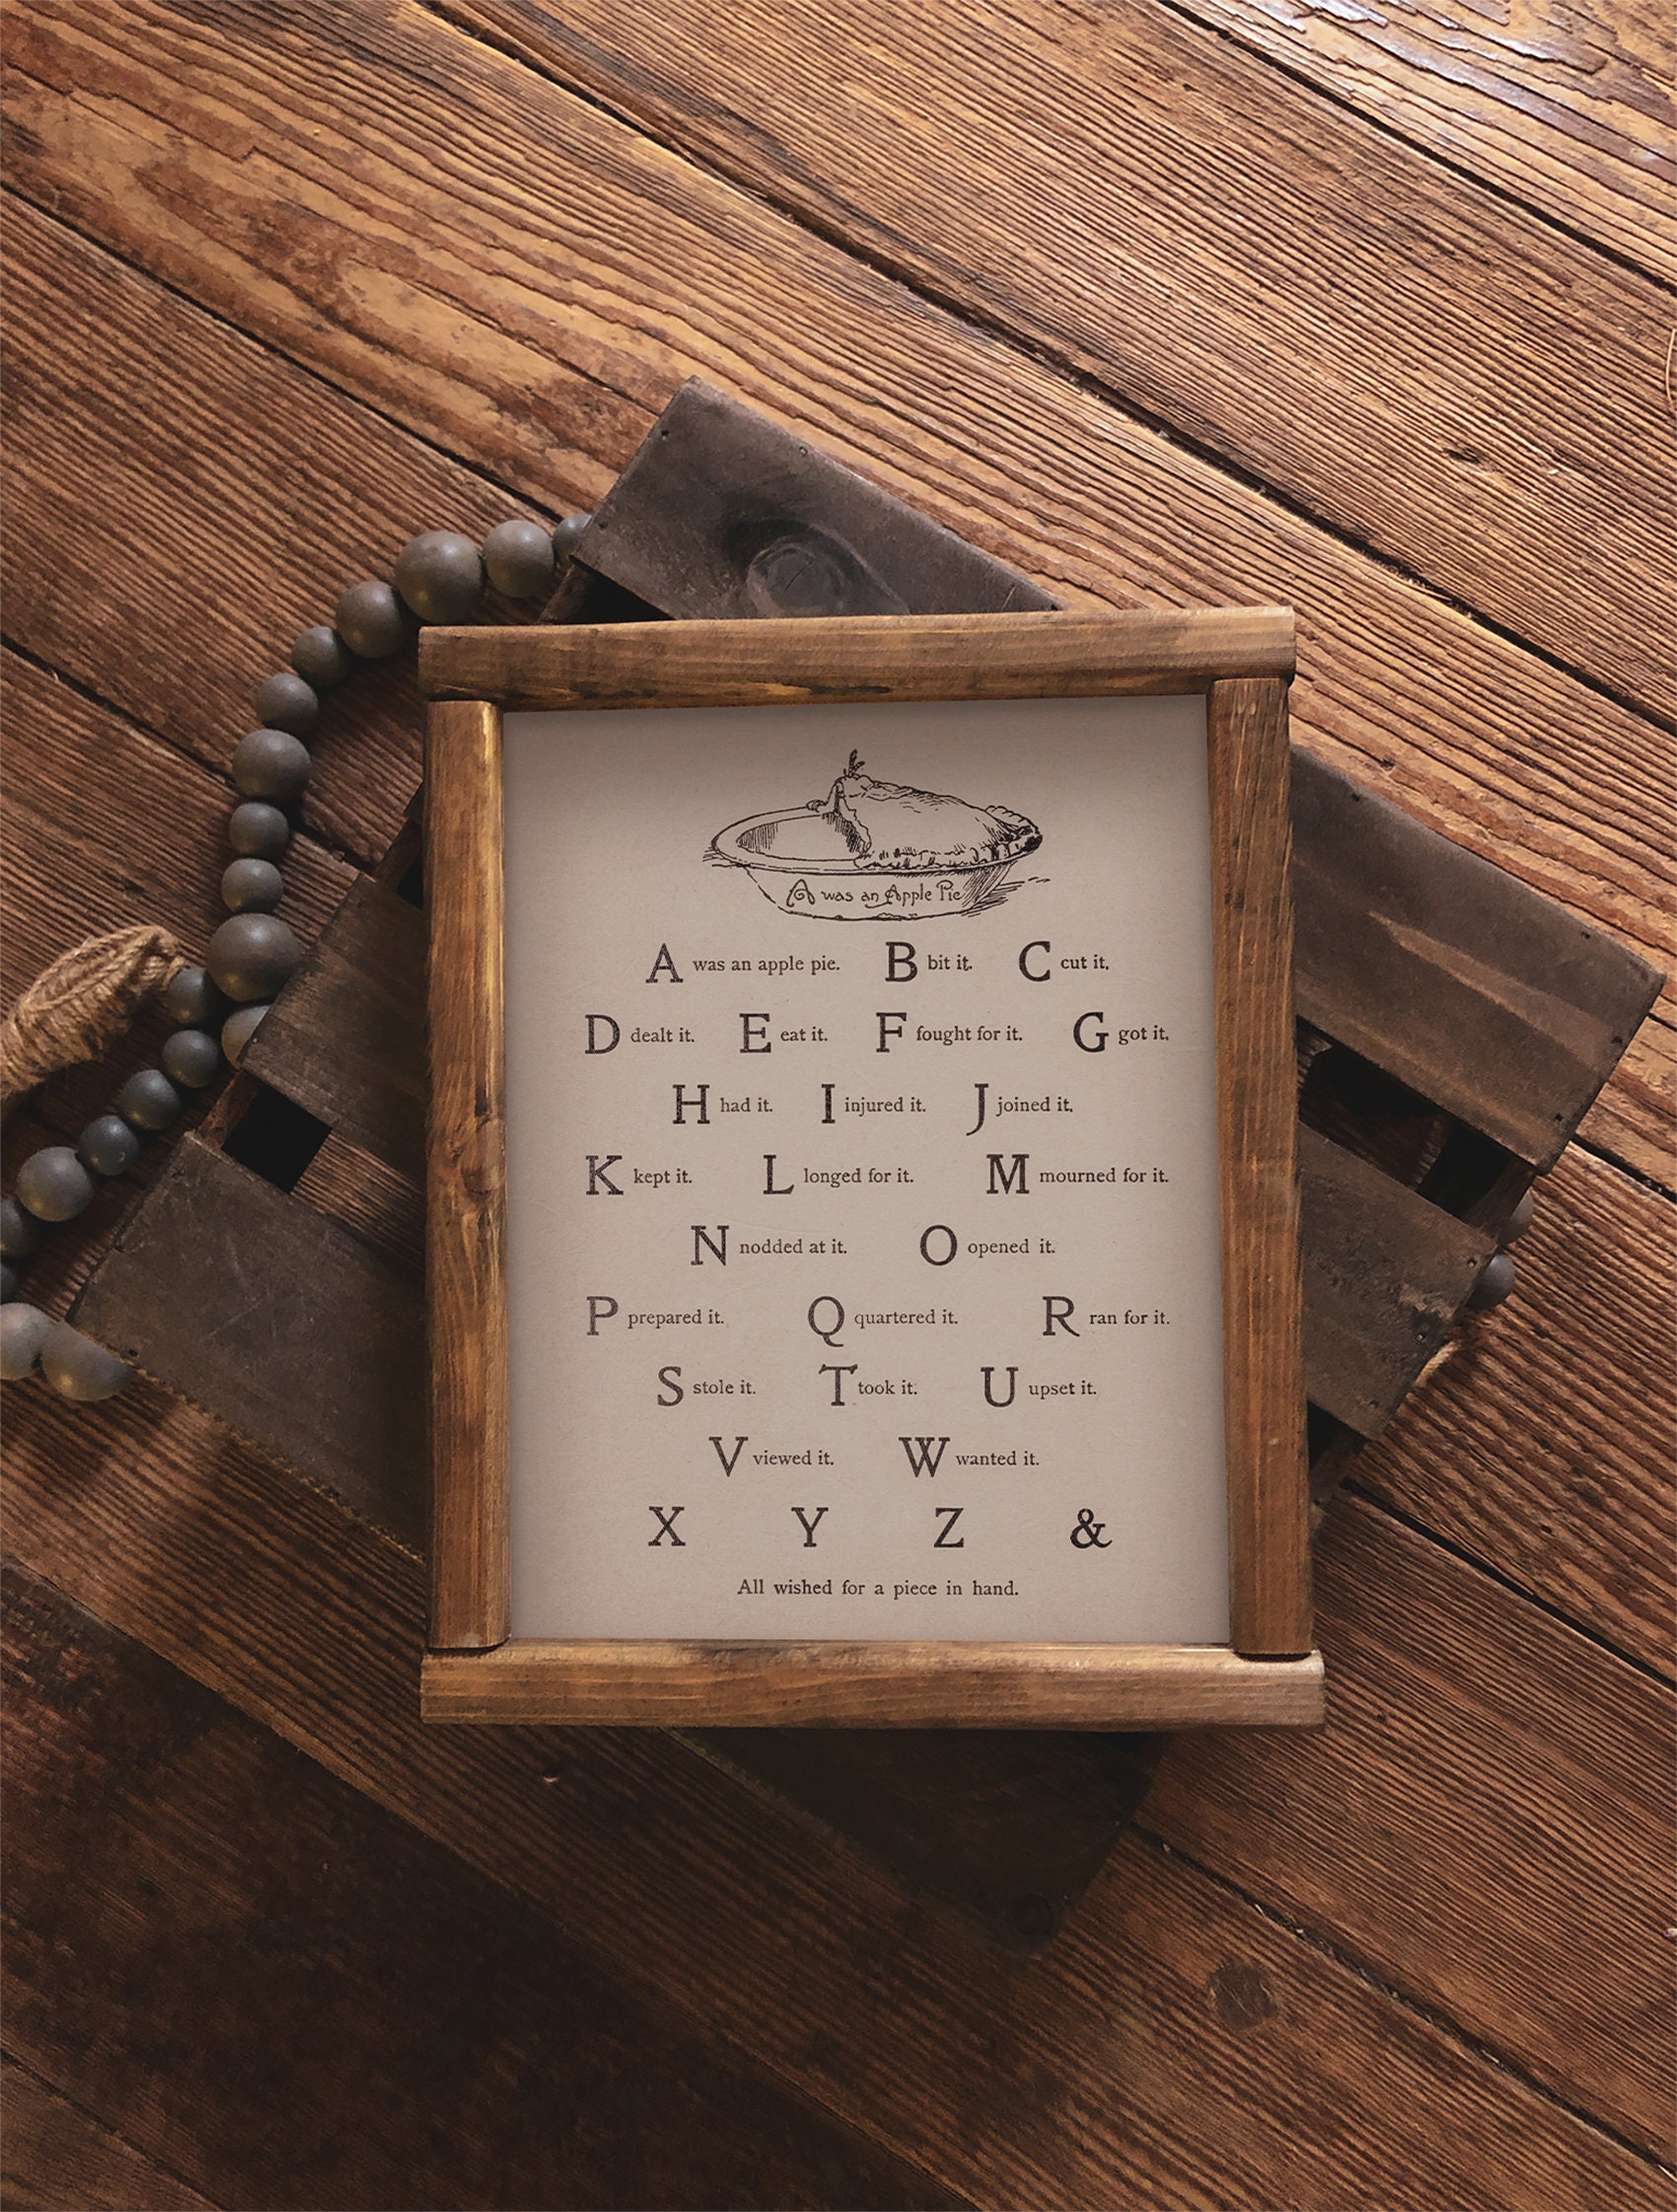 A was an Apple Pie
A was an apple pie. B bit it. C cut it.
D dealt it. E eat it. F fought for it. G got it.
H had it. I injured it. J joined it.
K kept it. L longed for it. M mourned for it.
N nodded at it. O opened it.
P prepared it. Q quartered it. R ran for it.
S stole it. T took it. U upset it.
V viewed it. W wanted it.
X Y Z &
All wished for a piece in hand.